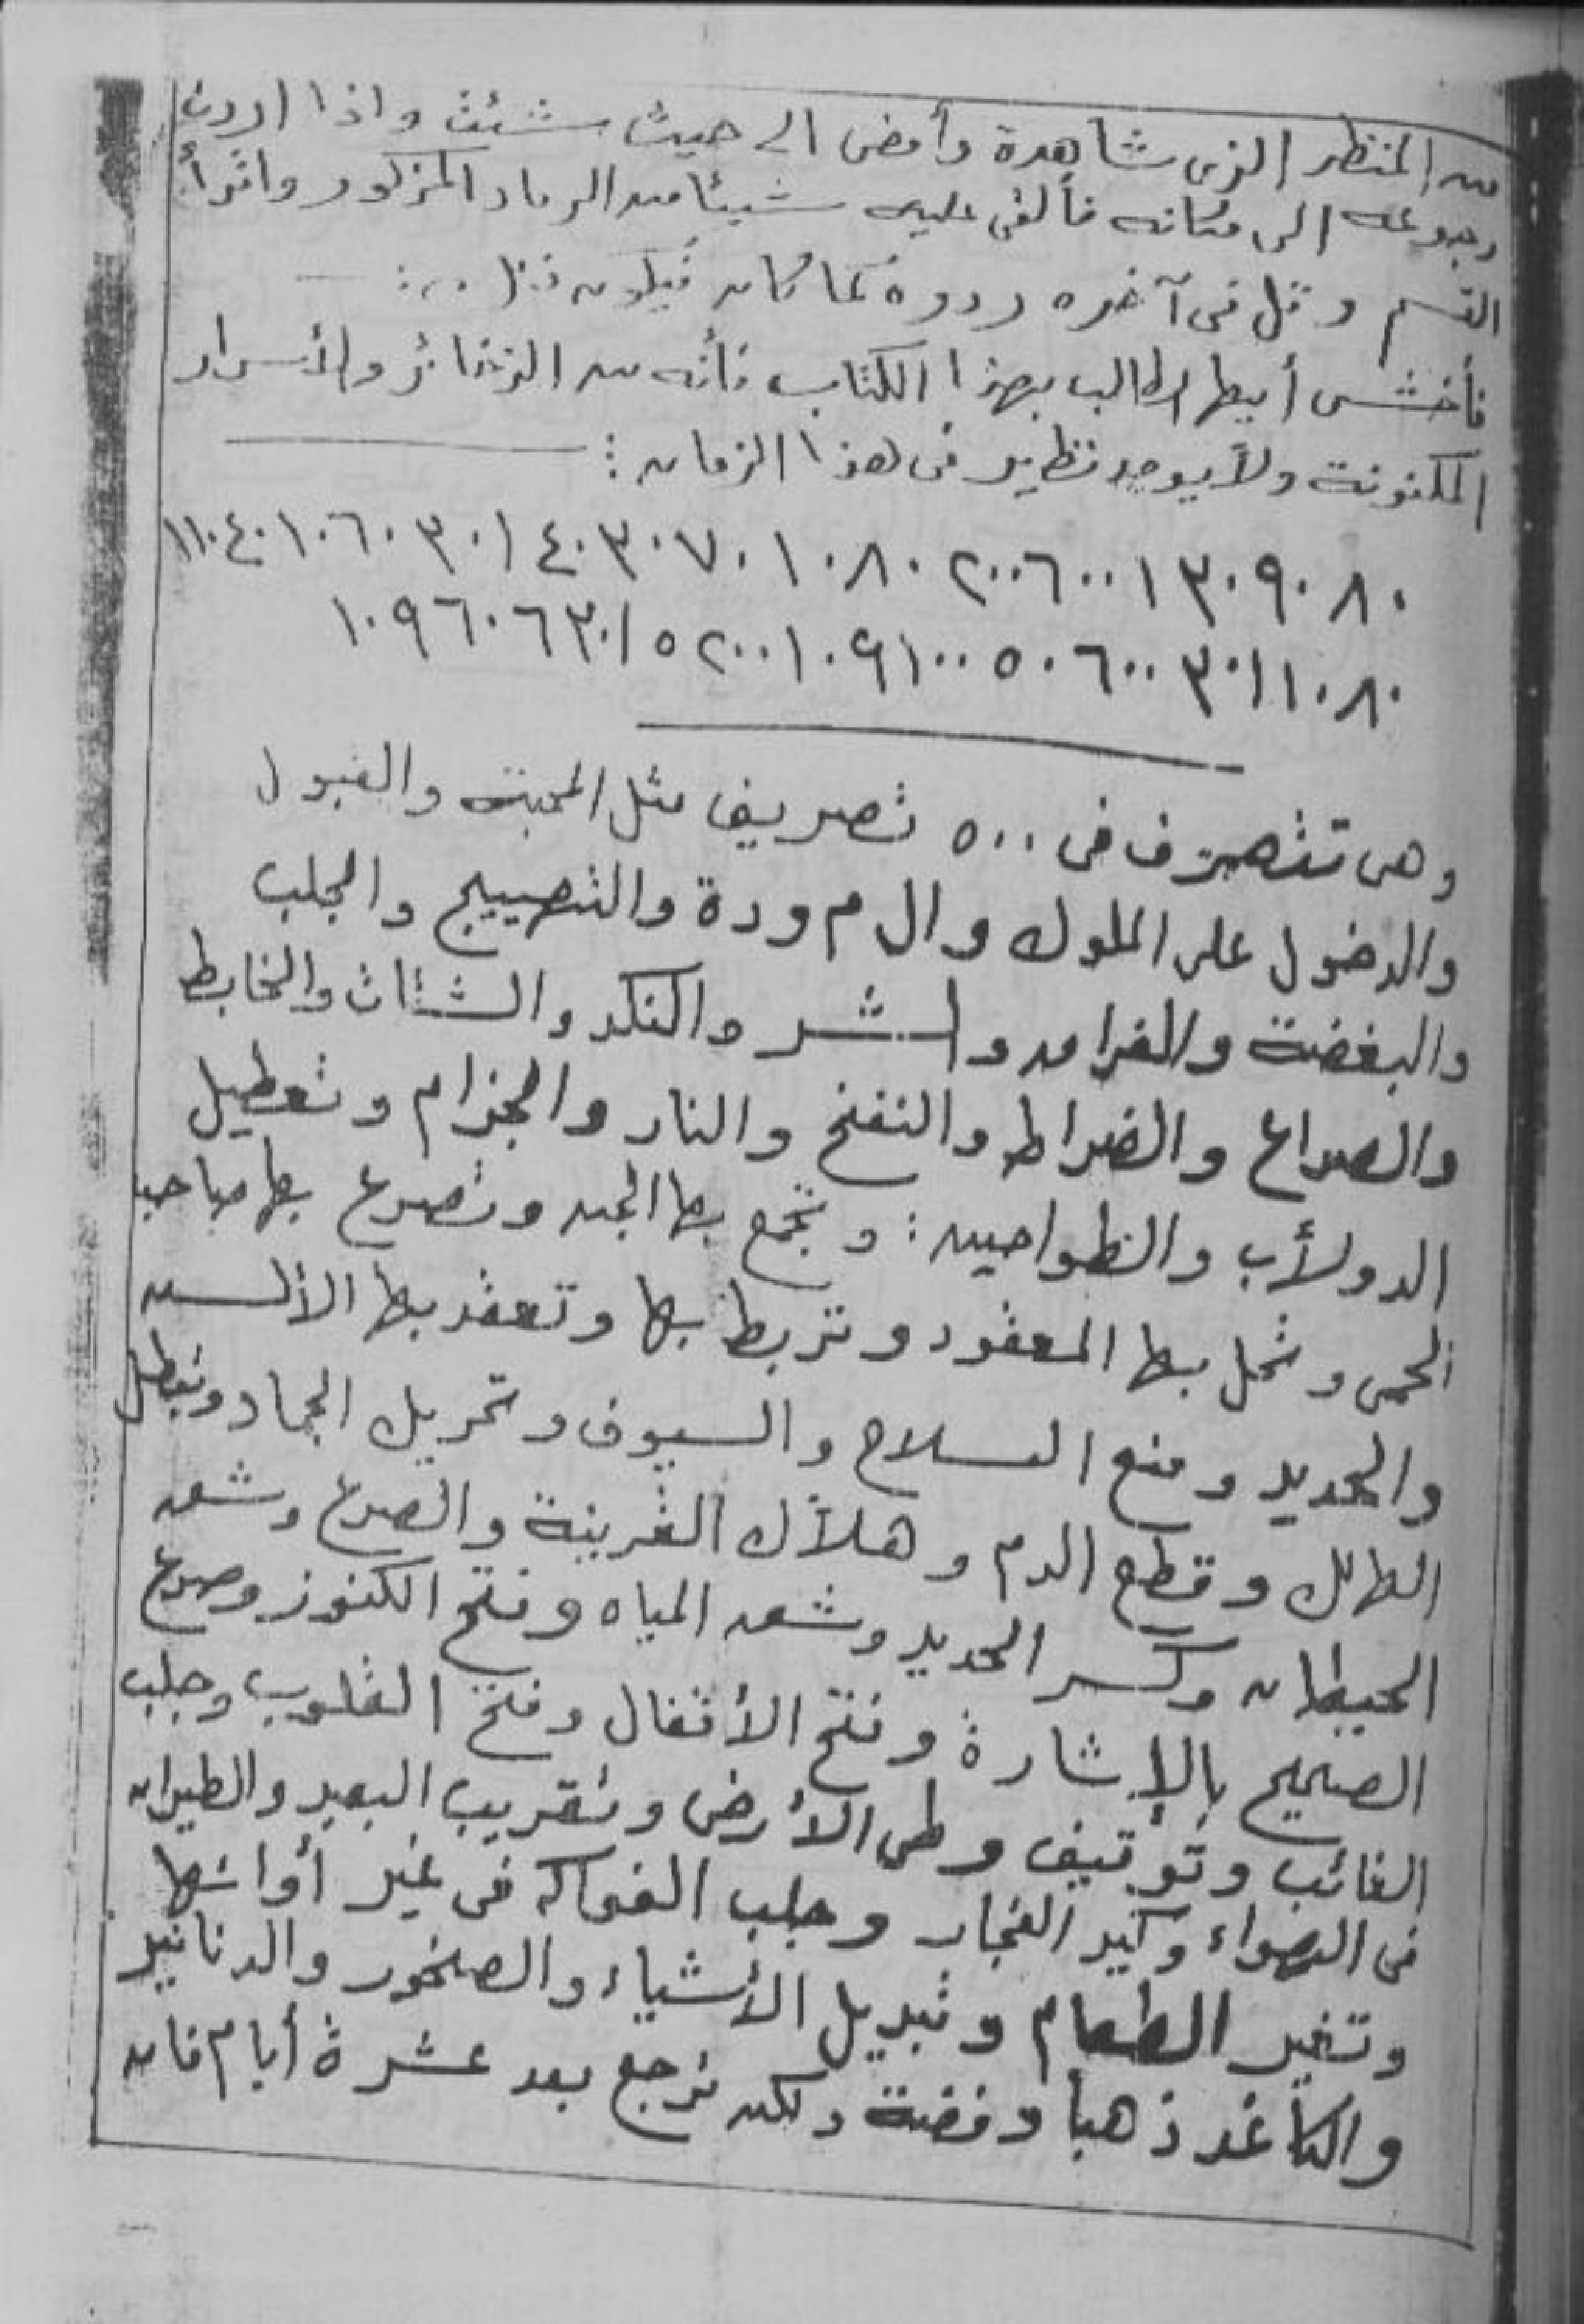 من المنظر الذى شاهدة وأمضى الى حيث شئت واذا اردت
رجوعه الى مكانه فألقى عليه شيئا من الرماد المذكور واقرأ
القسم وقل فى آخره ردوه كما كان فيكون ذلك
فأخشى أيها الطالب بهذا الكتاب فأنه من الذخائر والأسرار
المكنونة ولا يوجد نظير فى هذا الزمان :
٨٠ ٩٠ ٣٠ ١ ٦٠٠ ٢٠٠ ٨٠ ١٠ ٧٠ ٣٠ ٤٠ ١ ٣٠ ٦٠ ١٠ ٤٠ ١١٠
٨٠ ١٠ ١ ٣٠ ٦٠٠ ٥٠ ١٠٠ ٦ ٩ ١٠ ٢٠٠ ٥ ١ ٣٠ ٦ ٦٠ ٩ ١٠
وهى تتصرف فى ٥٠٠ تصريف مثل المحبته والقبول
والدخول على الملوك وال م ودة والتهييج والجلب
والبغضة والفراق والشر والنكد والشتات والخابط
والصداع والضراط والنفخ والنار والجزام وتعطيل
الدولأب والطواحين : وتجمع بها الجن وتصرع بها صاحب
الحمى وتحل بها المعقود وتربط بها وتعقد بها الألسن
والحديد ومنع السلاح والسيوف وتحريك الجماد وتبطل
الهالك وقطع الدم وهلاك القرينة والصرع وشق
الحيطان وكسر الحديد وشق المياه وفتح الكنوز وصرع
الصحيح بالإشارة وفتح الأقفال وفتح القلوب وجلب
الغائب وتوقيف وطى الأرض وتقريب البعيد والطيران
فى الهواء وكيد الفجار وجلب الفواكه فى غير أوانها
وتغير الطعام وتبديل الأشياء والصخور والدنانير
والكاغد ذهبا وفضة ولكن ترجع بعد عشرة أيام فان